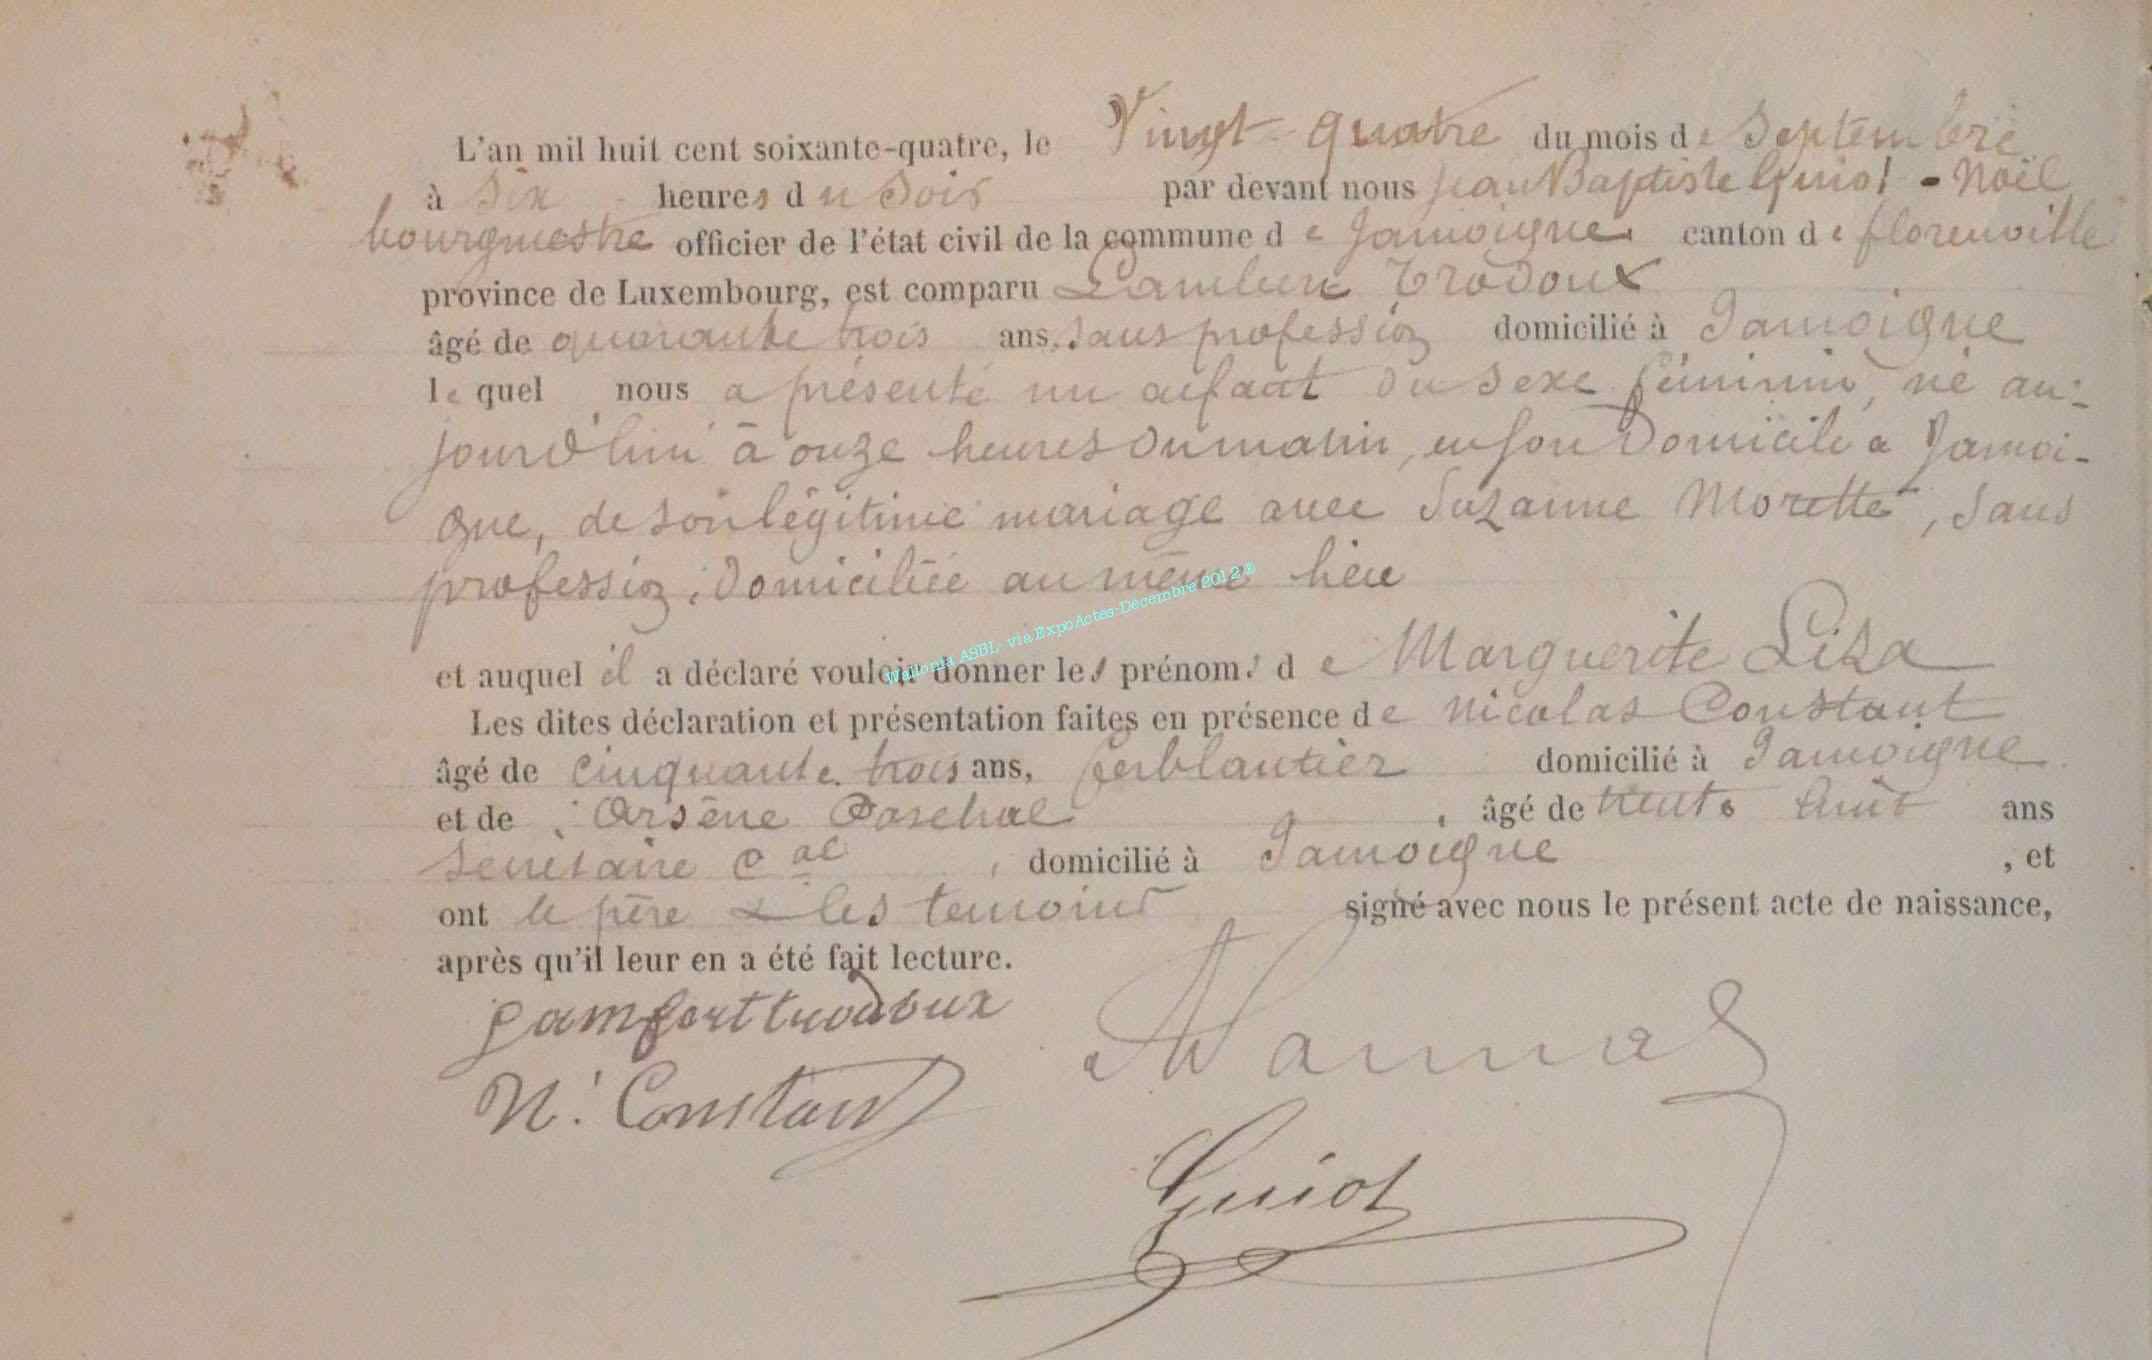 L'an mil huit cent soixante-quatre, le Vingt-quatre du mois de Septembre
à Six heures du Soir par devant nous Jean Baptiste Guiot - Noël
bourgmestre officier de l'état civil de la commune de Jamoigne canton de florenville
province de Luxembourg, est comparu Lambert Trodoux
âgé de quarante trois ans, sans profession domicilié à Jamoigne
le quel nous a présenté un enfant du sexe féminin, né au-
jourd'hui à onze heures du matin, en son Domicile à Jamoi-
gne, de son légitime mariage avec Suzanne Morette, sans
profession, domiciliée au même lieu
Wallonia ASBL- via ExpoActes-Décembre 2012 ®
et auquel il a déclaré vouloir donner les prénoms de Marguerite Lisa
Les dites déclaration et présentation faites en présence de Nicolas Constant
âgé de cinquante trois ans, ferblantier domicilié à Jamoigne
et de Arsène Paschal, âgé de trente huit ans
Secrétaire cal, domicilié à Jamoigne, et
ont le père & les temoins signé avec nous le présent acte de naissance,
après qu'il leur en a été fait lecture.
trodoux
N. Constant
Guiot